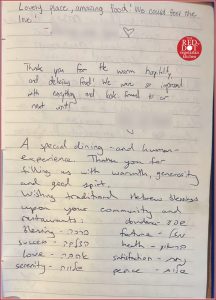 Lovely place, amazing food! We could feel the
love!
RED BOX
Thank you for the warm hospitality,
and delicious food! We were so impressed
with everything and look forward to our
next visit!
A special dining - and human -
experience. Thank you for
filling us with warmth, generosity
and good spirit.
Wishing traditional Hebrew blessings
upon your community and
restaurants:
abundance - שפע
blessing - ברכה
fortune - מזל
success - הצלחה
health - בריאות
love - אהבה
serenity - שלווה
peace - שלום